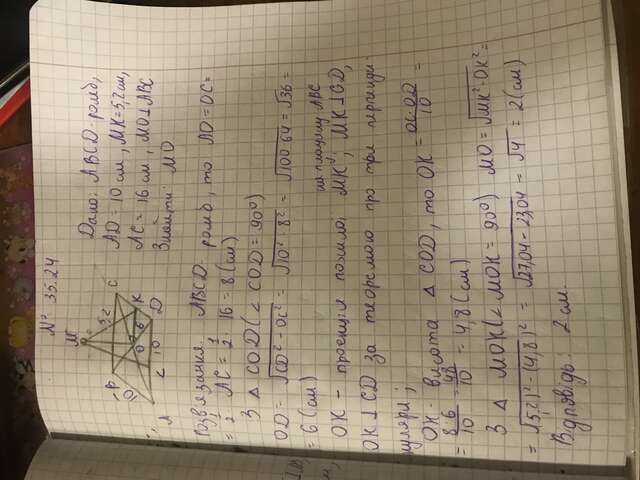 № 35.24
Дано: ABCD - ромб,
AD = 10 см, MK = 5,2 см,
AC = 16 см, MO⊥ABC
Знайти: MO
M
5,2
C
P
K
O
6
D
10
L
A
Розвязання. ABCD - ромб, то AO = OC =
= 1/2 AC = 1/2 · 16 = 8 (см)
З △ COD (∠ COD = 90°)
OD = √CD² - OC² = √10² - 8² = √100 - 64 = √36 =
= 6 (см)
на площину ABC
OK - проекція похилої MK; MK⊥CD,
OK⊥CD за теоремою про три перпенди-
куляри;
OK - висота △ COD, то OK = OC·OD/10 =
= 8·6/10 = 48/10 = 4,8 (см)
З △ MOK (∠ MOK = 90°) MO = √MK² - OK² =
= √(5,2)² - (4,8)² = √27,04 - 23,04 = √4 = 2 (см)
Відповідь: 2 см.